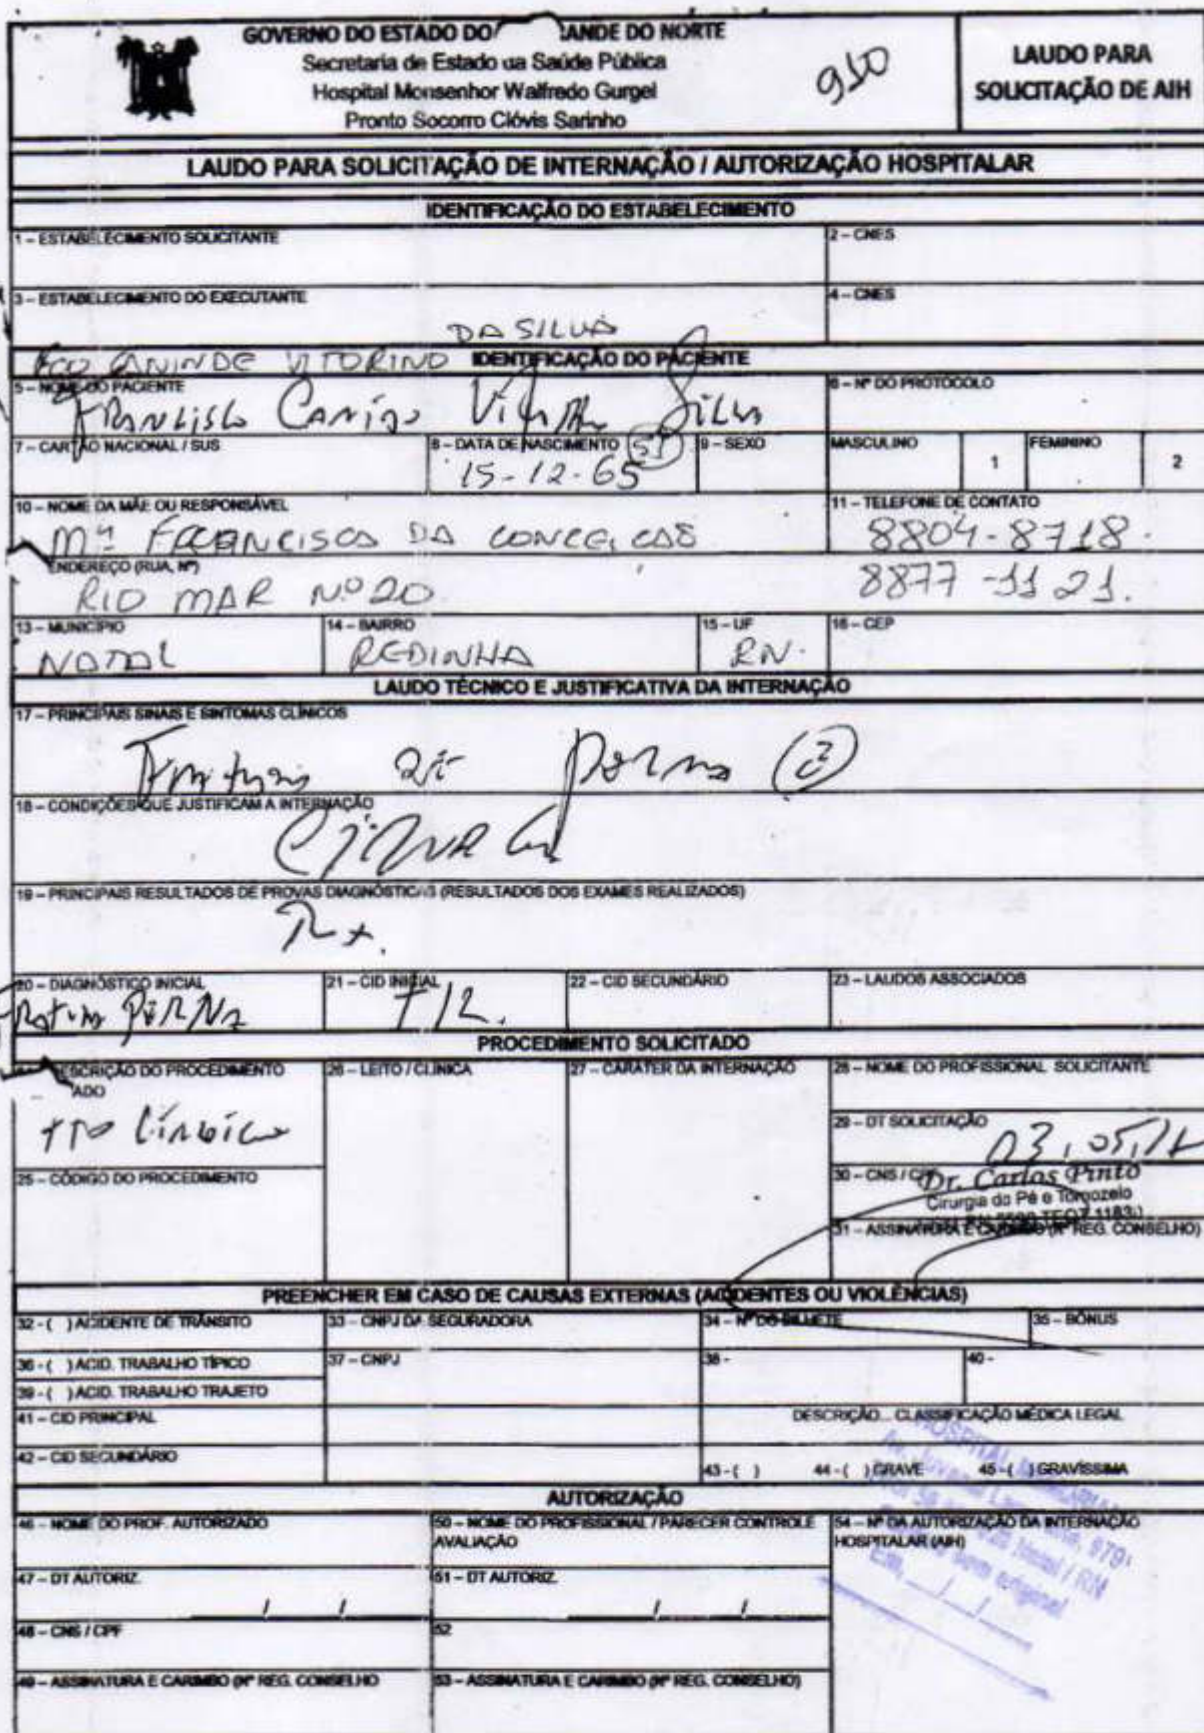 GOVERNO DO ESTADO DO ANDE DO NORTE
Secretaria de Estado da Saúde Pública
Hospital Monsenhor Walfredo Gurgel
Pronto Socorro Clóvis Sarinho
910
LAUDO PARA
SOLICITAÇÃO DE AIH
LAUDO PARA SOLICITAÇÃO DE INTERNAÇÃO / AUTORIZAÇÃO HOSPITALAR
IDENTIFICAÇÃO DO ESTABELECIMENTO
1 – ESTABELECIMENTO SOLICITANTE
2 – CNES
3 – ESTABELECIMENTO DO EXECUTANTE
4 – CNES
DA SILVA
FCO CANINDE VITORINO
IDENTIFICAÇÃO DO PACIENTE
5 – NOME DO PACIENTE
6 – Nº DO PROTÓCOLO
Francisco Silva
7 – CARTÃO NACIONAL / SUS
8 – DATA DE NASCIMENTO
15-12-65
9 – SEXO
MASCULINO
1
FEMININO
2
10 – NOME DA MÃE OU RESPONSÁVEL
11 – TELEFONE DE CONTATO
Mª FRANCISCA DA CONCEICAO
8804-8718.
ENDEREÇO (RUA, Nº)
8877-1121.
RIO MAR Nº 20
13 – MUNICÍPIO
14 – BAIRRO
15 – UF
16 – CEP
NATAL
REDINHA
RN.
LAUDO TÉCNICO E JUSTIFICATIVA DA INTERNAÇÃO
17 – PRINCIPAIS SINAIS E SINTOMAS CLÍNICOS
Fratura de perna
18 – CONDIÇÕES QUE JUSTIFICAM A INTERNAÇÃO
19 – PRINCIPAIS RESULTADOS DE PROVAS DIAGNÓSTICAS (RESULTADOS DOS EXAMES REALIZADOS)
Rx.
20 – DIAGNÓSTICO INICIAL
21 – CID INICIAL
22 – CID SECUNDÁRIO
23 – LAUDOS ASSOCIADOS
Fratura PERNA
T12.
PROCEDIMENTO SOLICITADO
ESCRIÇÃO DO PROCEDIMENTO
ADO
26 – LEITO / CLÍNICA
27 – CARÁTER DA INTERNAÇÃO
28 – NOME DO PROFISSIONAL SOLICITANTE
TTO Cirúrgico
29 – DT SOLICITAÇÃO
03, 05, 17
25 – CÓDIGO DO PROCEDIMENTO
30 – CNS / CPF
Dr. Carlos Pinto
Cirurgia do Pé e Tornozelo
31 – ASSINATURA E CARIMBO (Nº REG. CONSELHO)
PREENCHER EM CASO DE CAUSAS EXTERNAS (ACIDENTES OU VIOLÊNCIAS)
32 - ( ) ACIDENTE DE TRÂNSITO
33 – CNPJ DA SEGURADORA
34 – Nº DO BILHETE
35 – BÔNUS
36 - ( ) ACID. TRABALHO TÍPICO
37 – CNPJ
38 -
40 -
39 - ( ) ACID. TRABALHO TRAJETO
41 – CID PRINCIPAL
DESCRIÇÃO... CLASSIFICAÇÃO MÉDICA LEGAL
42 – CID SECUNDÁRIO
43 - ( ) 44 - ( ) GRAVE 45 - ( ) GRAVÍSSIMA
AUTORIZAÇÃO
46 – NOME DO PROF. AUTORIZADO
50 – NOME DO PROFISSIONAL / PARECER CONTROLE
AVALIAÇÃO
54 – Nº DA AUTORIZAÇÃO DA INTERNAÇÃO
HOSPITALAR (AIH)
47 – DT AUTORIZ.
51 – DT AUTORIZ.
___/___/___
___/___/___
48 – CNS / CPF
52
49 – ASSINATURA E CARIMBO (Nº REG. CONSELHO
53 – ASSINATURA E CARIMBO (Nº REG. CONSELHO)
HOSPITAL
Natal / RN
original
Em, __/__/__